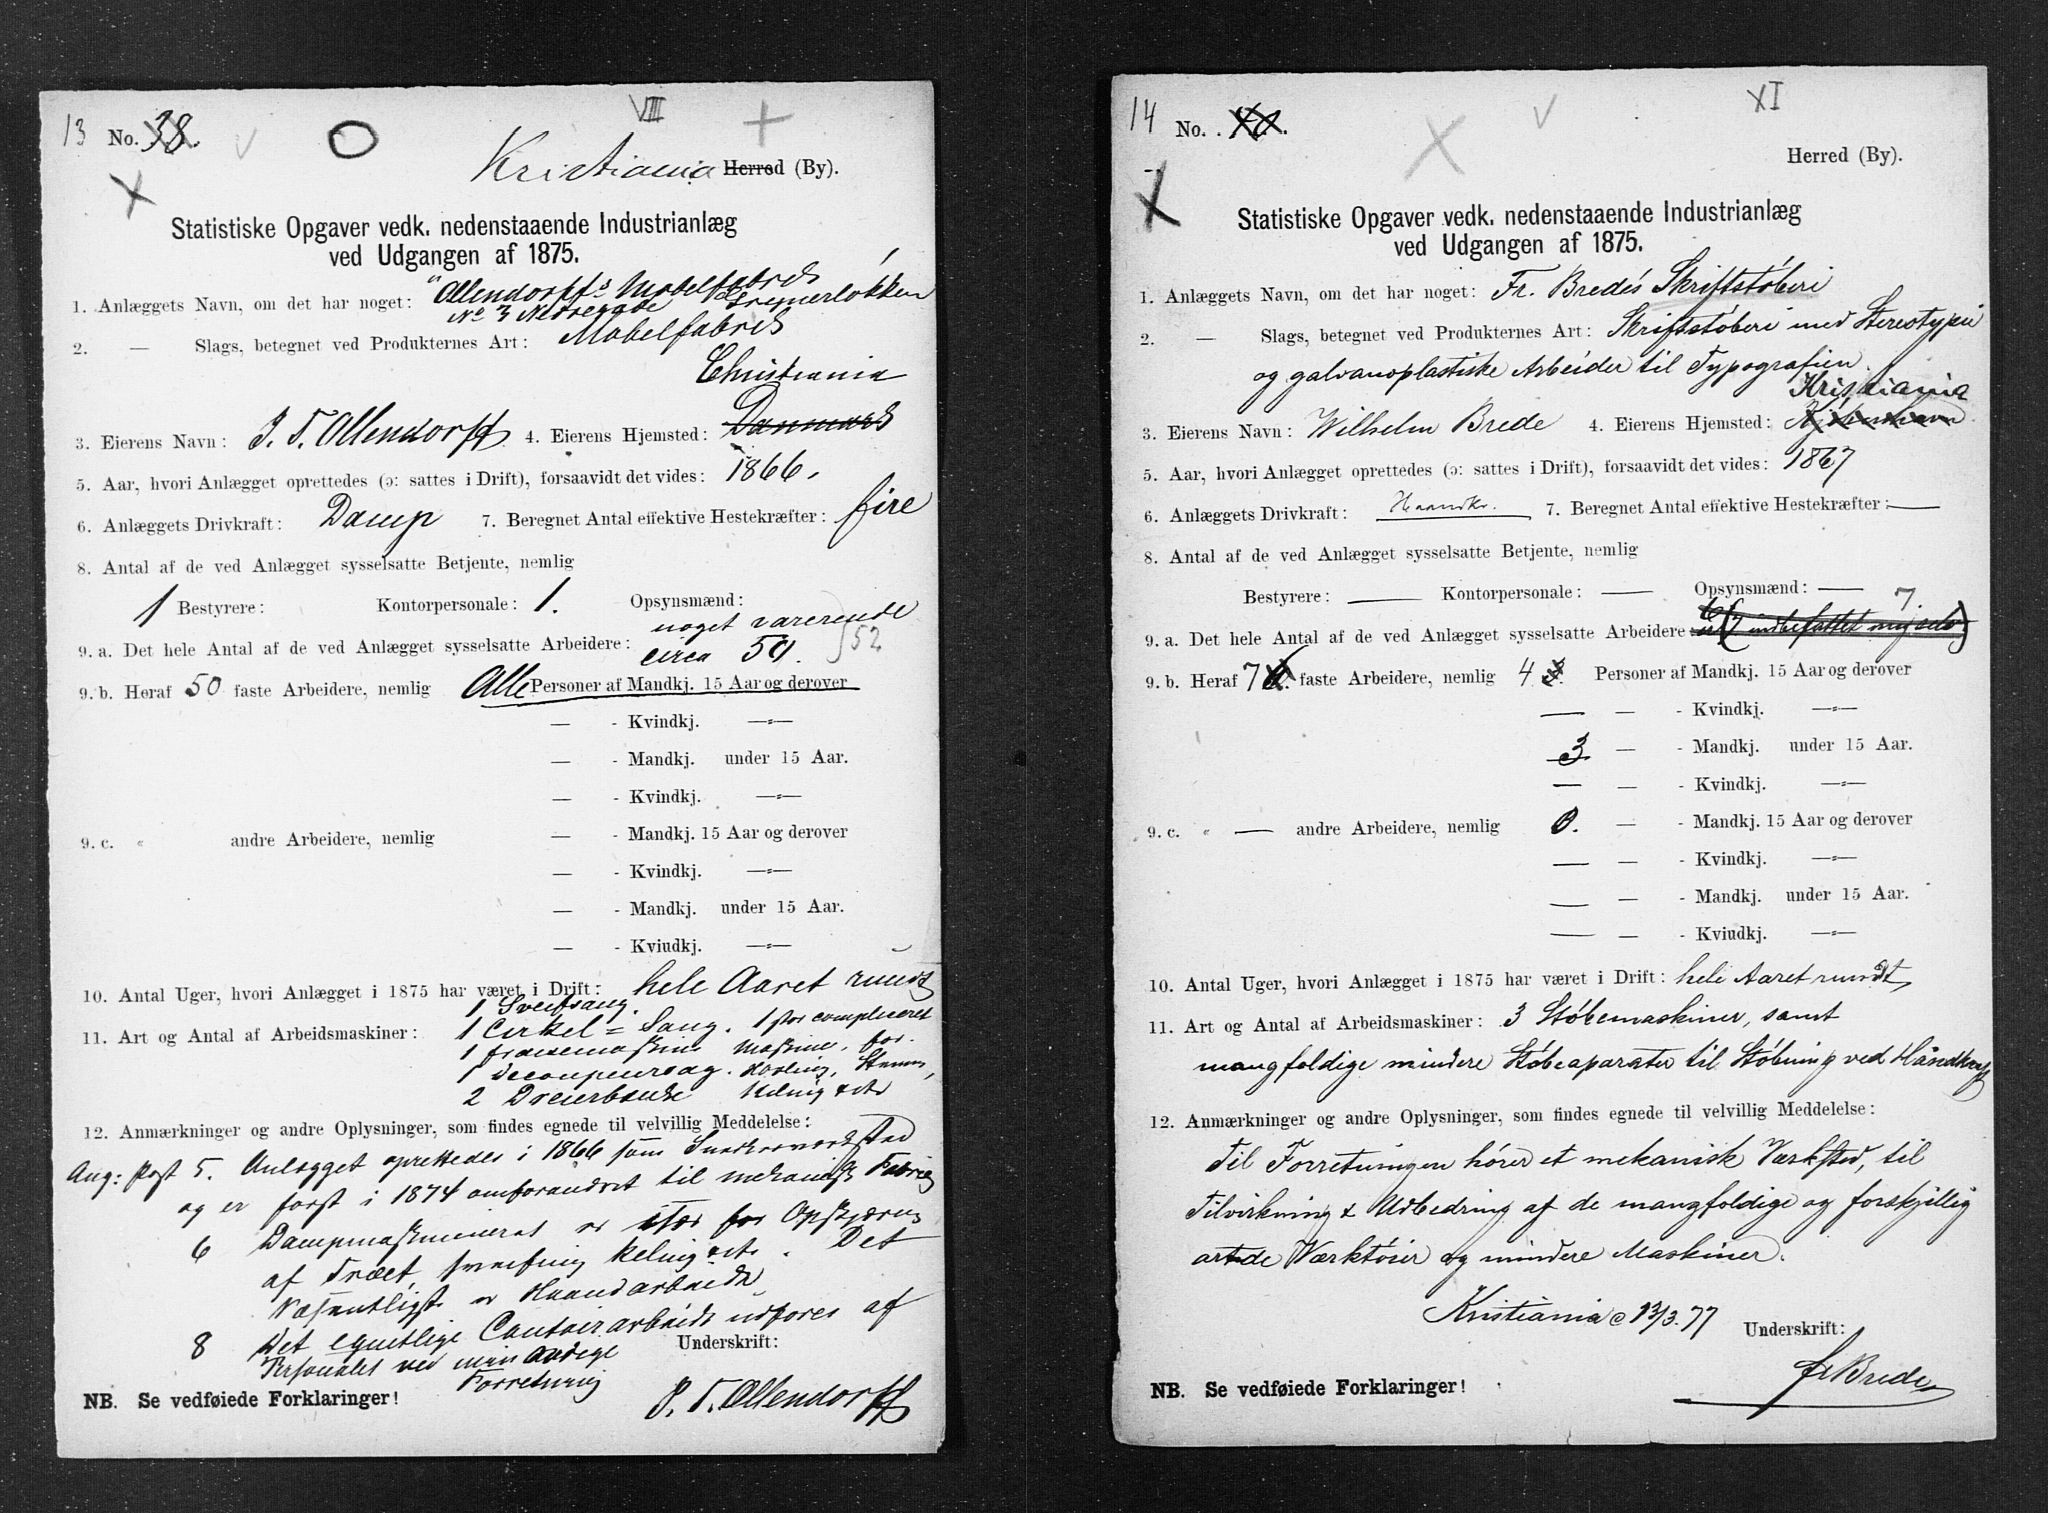 VIII
13 No. 38.
Kristiania Herred (By).
Statistiske Opgaver vedk. nedenstaaende Industrianlæg
ved Udgangen af 1875.
1. Anlæggets Navn, om det har noget: "Allendorffs Møbelfabrik
No 3 Nedregade Grünerløkken
2. — Slags, betegnet ved Produkternes Art: Møbelfabrik
Christiania
3. Eierens Navn: J. T. Allendorff 4. Eierens Hjemsted: Danmark
5. Aar, hvori Anlægget oprettedes (ɔ: sattes i Drift), forsaavidt det vides: 1866.
6. Anlæggets Drivkraft: Damp 7. Beregnet Antal effektive Hestekræfter: fire
8. Antal af de ved Anlægget sysselsatte Betjente, nemlig
1 Bestyrere: Kontorpersonale: 1. Opsynsmænd:
noget varerende
9. a. Det hele Antal af de ved Anlægget sysselsatte Arbeidere: circa 50. 52
9. b. Heraf 50 faste Arbeidere, nemlig Alle Personer af Mandkj. 15 Aar og derover
— - Kvindkj. —„—
— - Mandkj. under 15 Aar.
— - Kvindkj. —„—
9. c. „ andre Arbeidere, nemlig — - Mandkj. 15 Aar og derover
— - Kvindkj. —„—
— - Mandkj. under 15 Aar.
— - Kviudkj. —„—
10. Antal Uger, hvori Anlægget i 1875 har været i Drift: hele Aaret rundt
1 Sveifsaug.
11. Art og Antal af Arbeidsmaskiner: 1 Cirkel = Saug. 1 stor compliceret
1 fraesemaskine Maskine, for
1 Decoupeursag. Høvling, Stemm,
2 Dreierbænke Keling & etc
12. Anmærkninger og andre Oplysninger, som findes egnede til velvillig Meddelelse:
Ang: Post 5. Anlægget oprettedes i 1866 som Snedkerværksted
og er først i 1874 omforandret til mekanisk Fabrik
6 Dampmaskineriet er især for Opskjæring
af Træet, Keling etc. Det
Væsentligste er Haandarbeide
8 Det egentlige Contoirarbeide udføres af
Personalet ved min øvrige
Forretning
Underskrift:
NB. Se vedføiede Forklaringer!
J. T. Allendorff
XI
14 No.
Herred (By).
Statistiske Opgaver vedk. nedenstaaende Industrianlæg
ved Udgangen af 1875.
1. Anlæggets Navn, om det har noget: Fr. Bredés Skriftstøberi
2. — Slags, betegnet ved Produkternes Art: Skriftstøberi med Stereotypi
og galvanoplastiske Arbeider til Typografien.
Kristiania
3. Eierens Navn: Wilhelm Brede 4. Eierens Hjemsted: Kjøbenhavn
5. Aar, hvori Anlægget oprettedes (ɔ: sattes i Drift), forsaavidt det vides: 1867
6. Anlæggets Drivkraft: Haandkr. 7. Beregnet Antal effektive Hestekræfter: —
8. Antal af de ved Anlægget sysselsatte Betjente, nemlig
Bestyrere: — Kontorpersonale: — Opsynsmænd: —
7.
9. a. Det hele Antal af de ved Anlægget sysselsatte Arbeidere indbefattet mig selv)
9. b. Heraf 7 faste Arbeidere, nemlig 4 3. Personer af Mandkj. 15 Aar og derover
— — - Kvindkj. —„—
3 — - Mandkj. under 15 Aar.
— — - Kvindkj. —„—
9. c. „ — andre Arbeidere, nemlig 0. — - Mandkj. 15 Aar og derover
— — - Kvindkj. —„—
— — - Mandkj. under 15 Aar.
— — - Kviudkj. —„—
10. Antal Uger, hvori Anlægget i 1875 har været i Drift: hele Aaret rundt
11. Art og Antal af Arbeidsmaskiner: 3 Støbemaskiner, samt
mangfoldige mindere Støbeaparater til Støbning ved Håndkraft
12. Anmærkninger og andre Oplysninger, som findes egnede til velvillig Meddelelse:
Til Forretningen hører et mekanisk Værksted, til
Tilvirkning & Udbedring af de mangfoldige og forskjellig
artede Værktøier og mindere Maskiner.
Kristiania 13/3.77
Underskrift:
NB. Se vedføiede Forklaringer!
Fr Brede